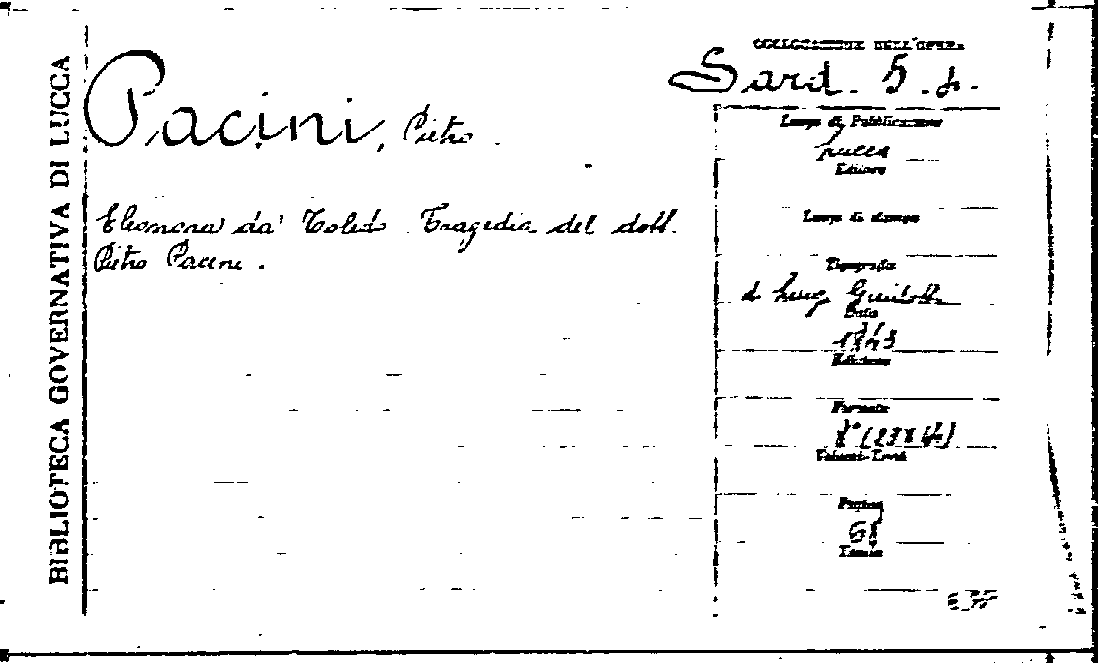 BIBLIOTECA GOVERNATIVA DI LUCCA
COLLOCAZIONE DELL'OPERA
Sard. 5. h.
Pacini, Pietro.
Eleonora da' Toledo. Tragedia del dott.
Pietro Pacini.
Luogo di Pubblicazione
Lucca
Editore
Luogo di stampa
Tipografia
Guidotti
Data
1843
Edizione
Formato
8°
Volumi-Tomi
Pagine
68